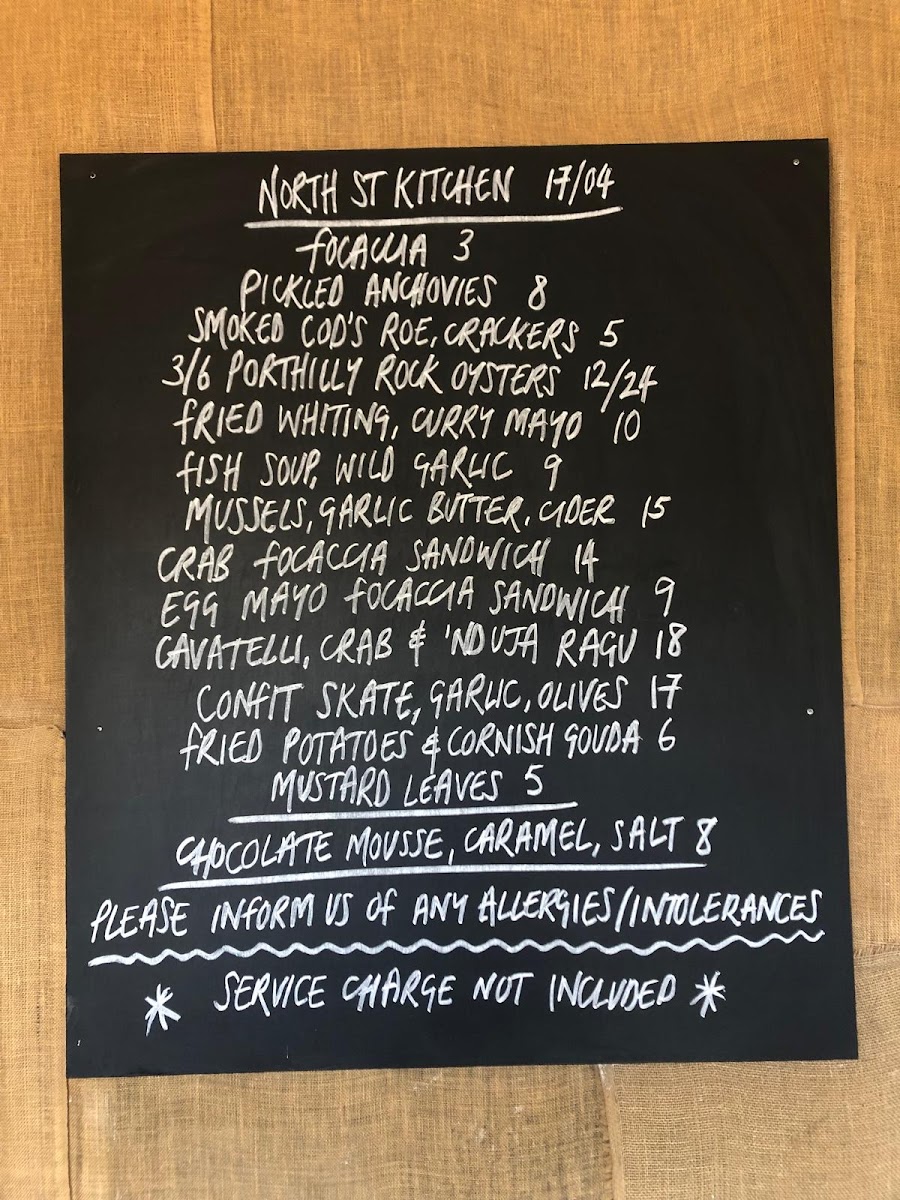 NORTH ST KITCHEN 17/04
FOCACCIA 3
PICKLED ANCHOVIES 8
SMOKED COD'S ROE, CRACKERS 5
3/6 PORTHILLY ROCK OYSTERS 12/24
FRIED WHITING, CURRY MAYO 10
FISH SOUP, WILD GARLIC 9
MUSSELS, GARLIC BUTTER, CIDER 15
CRAB FOCACCIA SANDWICH 14
EGG MAYO FOCACCIA SANDWICH 9
CAVATELLI, CRAB & 'NDUJA RAGU 18
CONFIT SKATE, GARLIC, OLIVES 17
FRIED POTATOES & CORNISH GOUDA 6
MUSTARD LEAVES 5
CHOCOLATE MOUSSE, CARAMEL, SALT 8
PLEASE INFORM US OF ANY ALLERGIES/INTOLERANCES
* SERVICE CHARGE NOT INCLUDED *